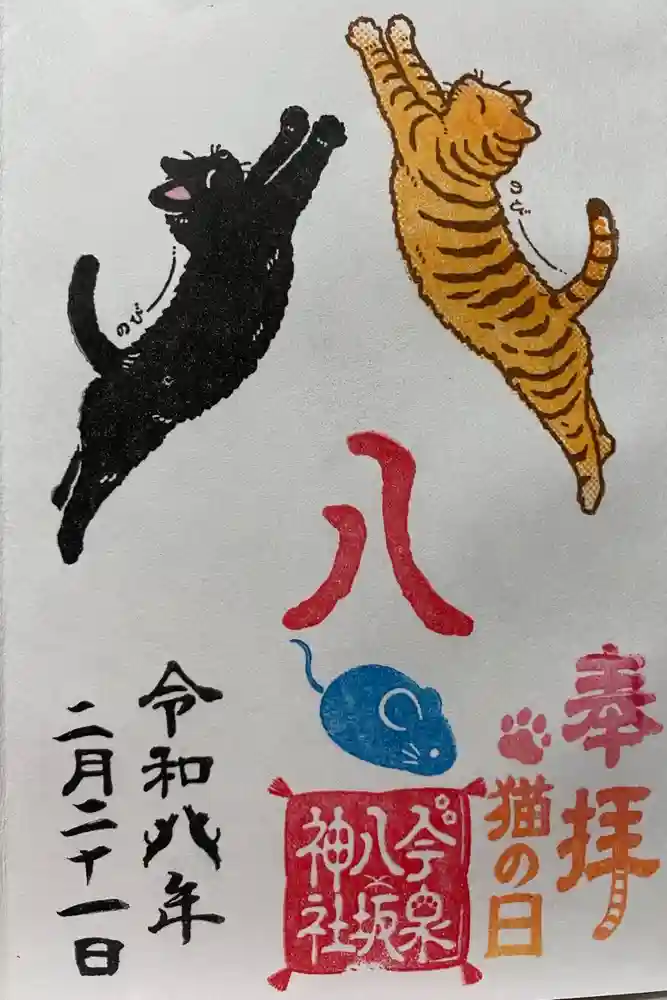 奉拝
猫の日
のび
のび
八
今泉
八坂
神社
令和八年
二月二十一日